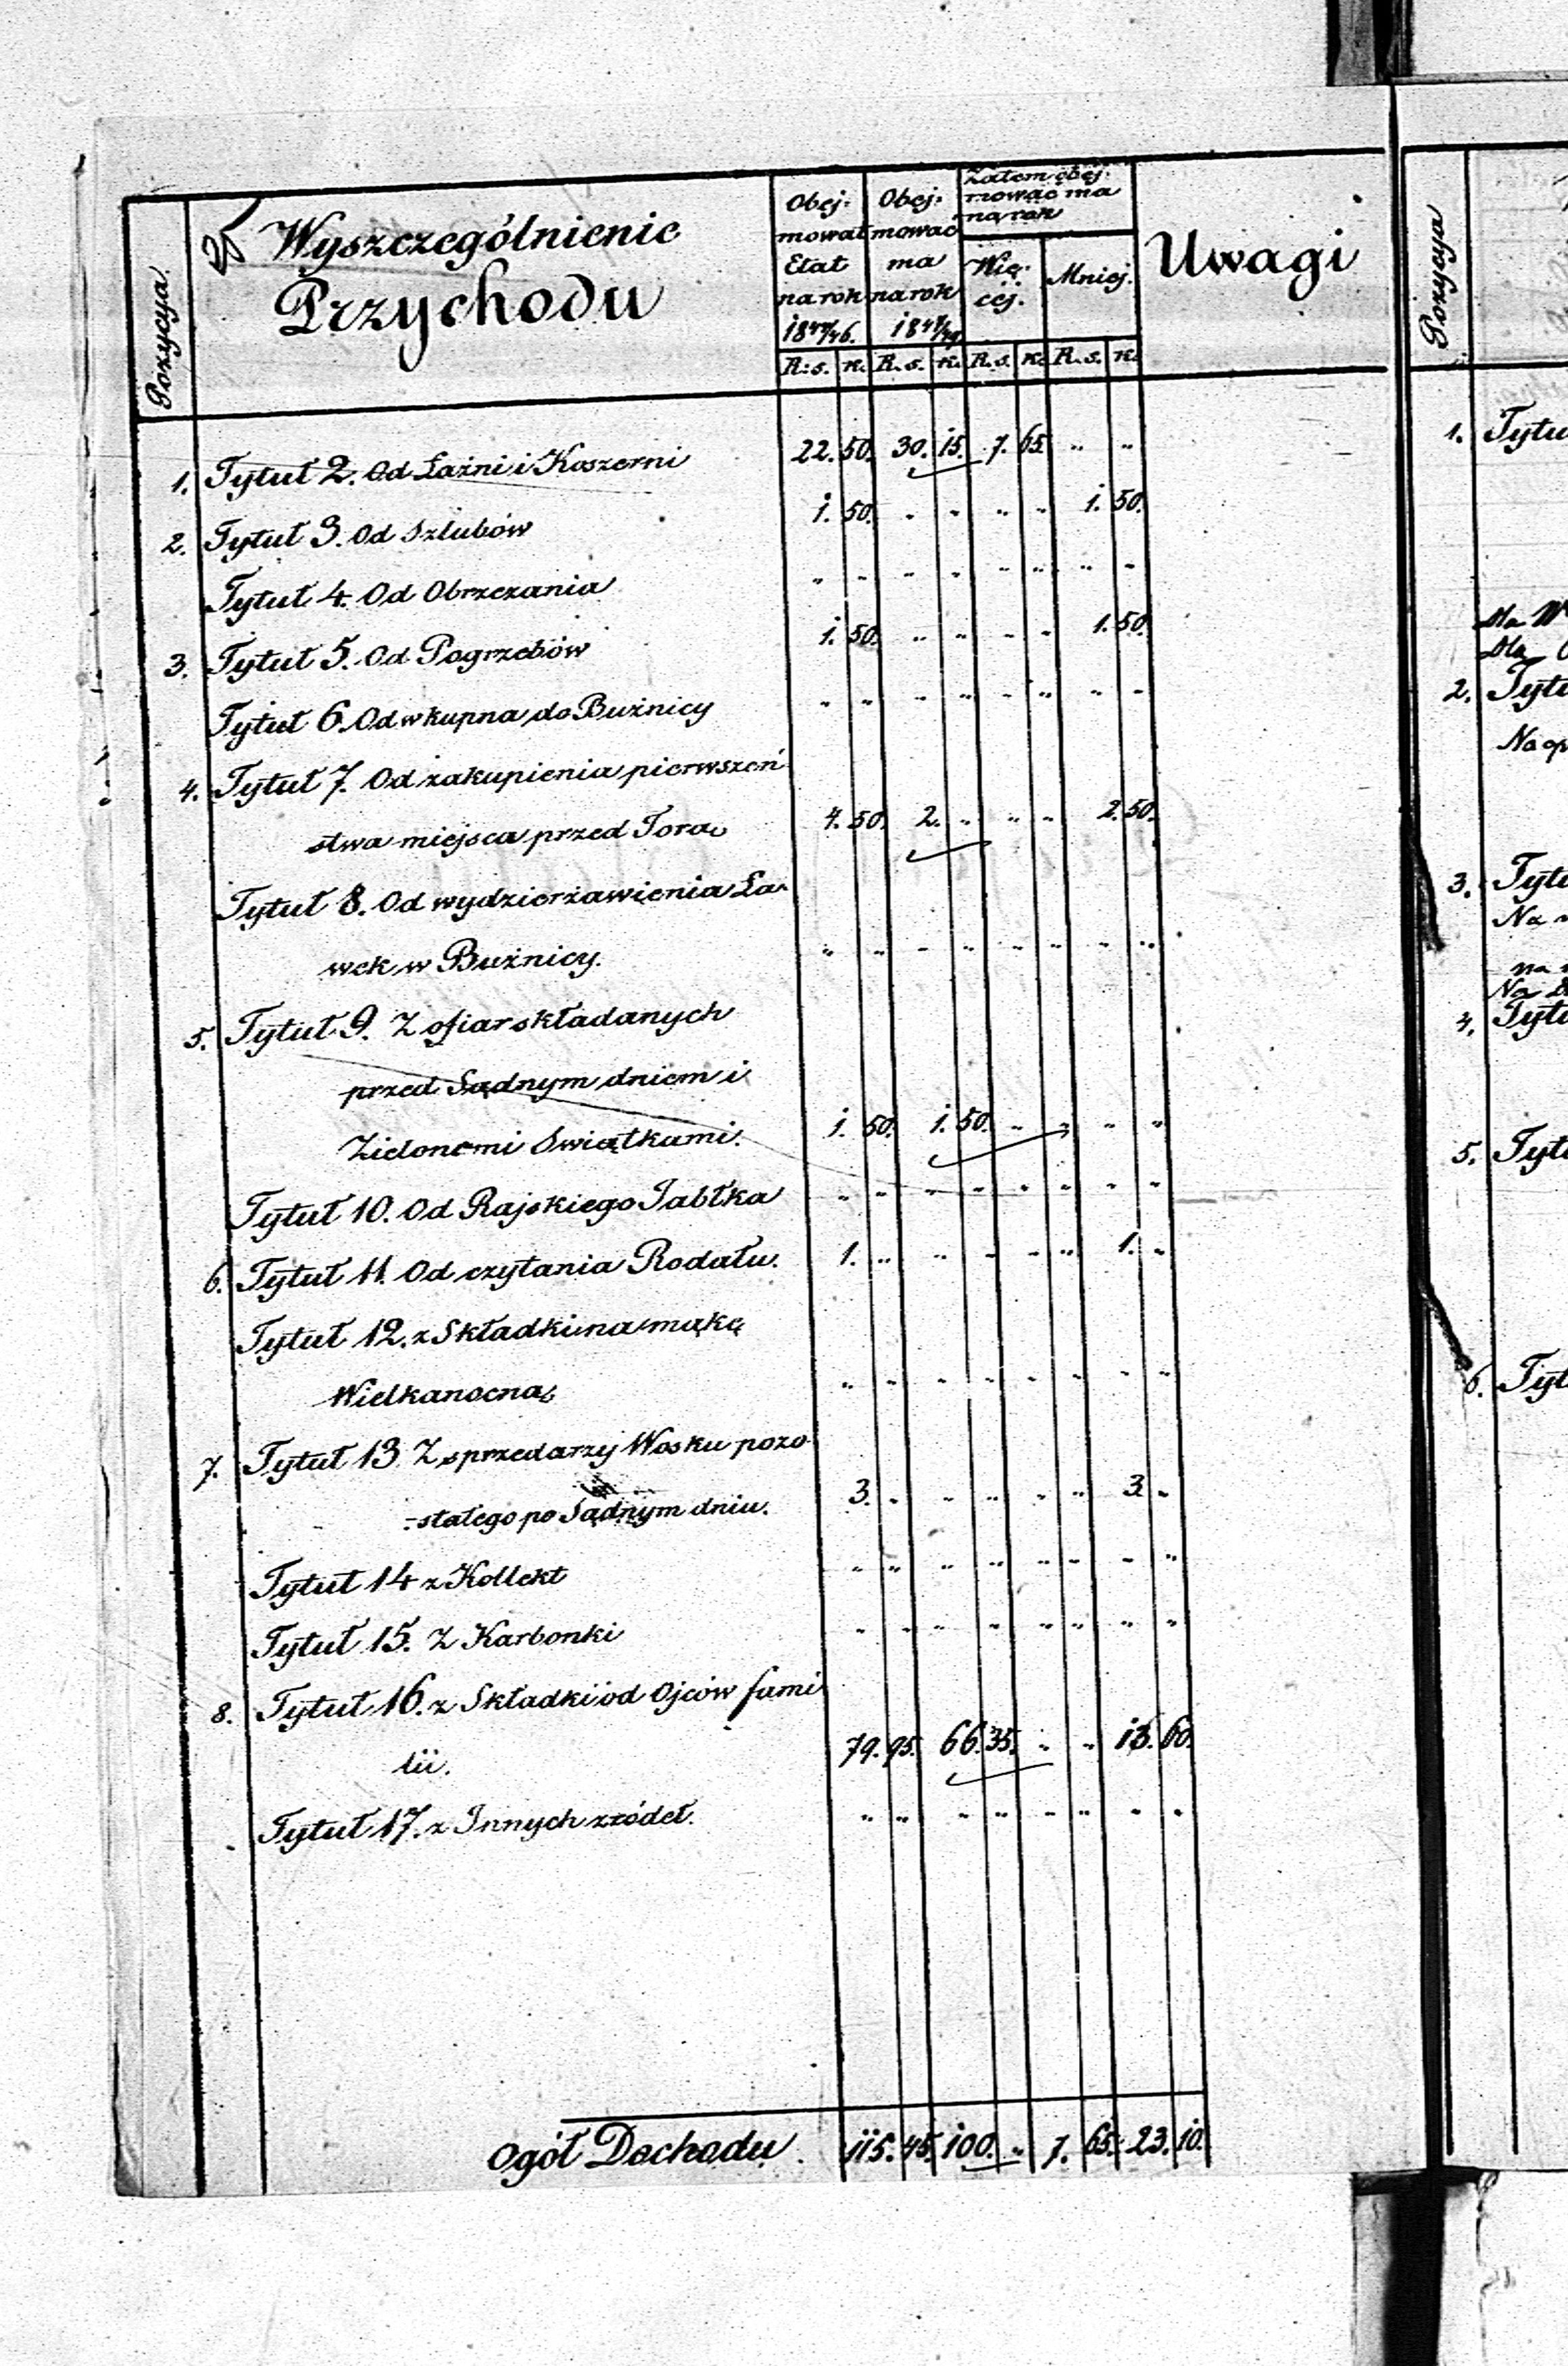 Pozycya
Wyszczególnienie
Przychodu
Obej-
mował
Etat
na rok
Obej-
mować
ma
na rok
Zatem obej-
mować ma
na rok
Wię-
cej.
Mniej.
Uwagi
R:s. k. R.s. k. R.s. k. R.s. k.
1. Tytuł 2. Od Łaźni i Koszerni 22. 50. 30. 15. 7. 65. " "
2. Tytuł 3. Od Szlubów 1. 50. " " " " 1. 50.
Tytuł 4. Od Obrzezania " " " " " " " "
3. Tytuł 5. Od Pogrzebów 1. 50. " " " " 1. 50.
Tytuł 6. Od wkupna do Bużnicy " " " " " " " "
4. Tytuł 7. Od zakupienia pierwszeń
stwa miejsca przed Torą 4. 50. 2. " " " 2. 50.
Tytuł 8. Od wydzierżawienia Ła-
wek w Bużnicy. " " " " " " " "
5. Tytuł 9. Z ofiar składanych
przed Sądnym dniem i
Zielonemi Swiątkami. 1. 50. 1. 50. " " " "
Tytuł 10. Od Rajskiego Jabłka " " " " " " " "
6. Tytuł 11. Od czytania Rodału. 1. " " " " " 1. "
Tytuł 12. z Składki na mąkę
Wielkanocną " " " " " " " "
7. Tytuł 13. Z sprzedarzy Wosku pozo
-stałego po Sądnym dniu. 3. " " " " " 3. "
Tytuł 14 z Kollekt " " " " " " " "
Tytuł 15. Z Karbonki " " " " " " " "
8. Tytuł 16. z Składki od Ojców fami
lii. 79. 95. 66. 35. " " 13. 60.
Tytuł 17. z Innych zródeł. " " " " " " " "
Ogół Dochodu 115. 45. 100. " 7. 65. 23. 10.
Pozycya
1. Tytu
2. Tytu
3. Tytu
4. Tytu
5. Tytu
6. Tyt